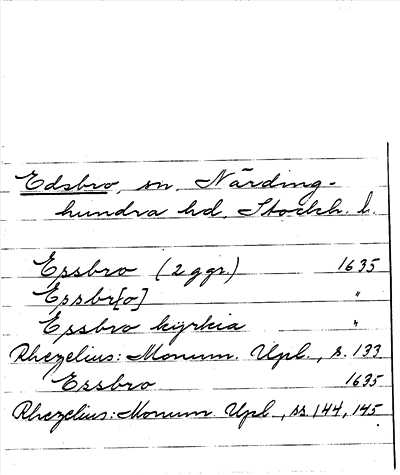 Edsbro, sn, Närding-
hundra hd, Stockh. l.
Essbro (2 ggr.) 1635
Essbr[o] "
Essbro kijrkia "
Rhezelius: Monum. Upl., s. 133
Essbro 1635
Rhezelius: Monum Upl., ss 144, 145